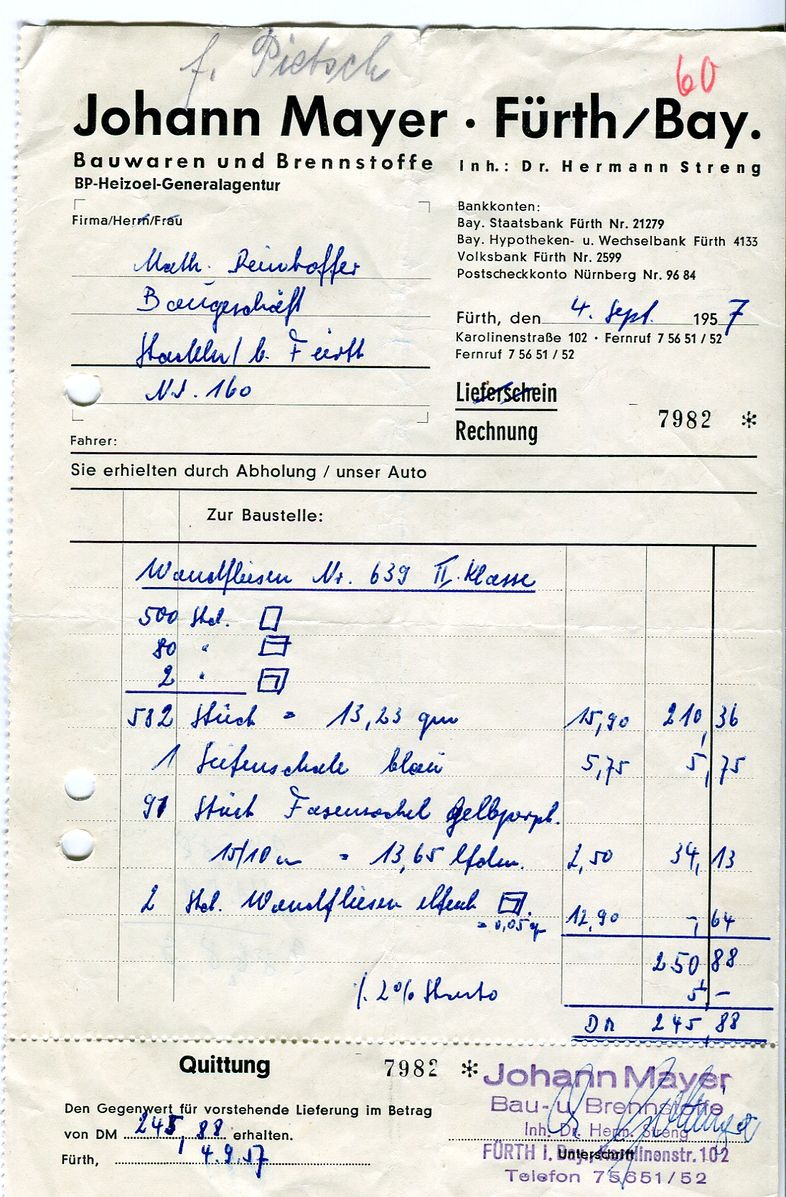 f. Pietsch
60
Johann Mayer · Fürth/Bay.
Bauwaren und Brennstoffe Inh.: Dr. Hermann Streng
BP-Heizoel-Generalagentur
Bankkonten:
Firma/Herrn/Frau
Bay. Staatsbank Fürth Nr. 21279
Bay. Hypotheken- u. Wechselbank Fürth 4133
Volksbank Fürth Nr. 2599
Postscheckkonto Nürnberg Nr. 96 84
Math.
Baugeschäft
b. Fürth
Nr. 160
Fürth, den 4. Sept. 1957
Karolinenstraße 102 · Fernruf 7 56 51 / 52
Fernruf 7 56 51 / 52
Lieferschein
Rechnung 7982 *
Fahrer:
Sie erhielten durch Abholung / unser Auto
Zur Baustelle:
Wandfliesen Nr. 639 II. Klasse
500 Stck.
80 "
2 "
582 Stück = 13,23 qm 15,90 210,36
1 Seifenschale blau 5,75 5,75
91 Stück Fasensockel gelbporph.
15/10 cm = 13,65 lfdm. 2,50 34,13
2 Stck. Wandfliesen elfenb.
= 0,05 qm 12,90 -,64
250 88
/. 2% Skonto 5,-
DM 245,88
Quittung 7982 *
Den Gegenwert für vorstehende Lieferung im Betrag
von DM 245,88 erhalten.
Fürth, 4.9.57
Johann Mayer
Bau- u. Brennstoffe
Inh. Dr. Herm. Streng
FÜRTH i. Bay., Karolinenstr. 102
Unterschrift
Telefon 75651/52